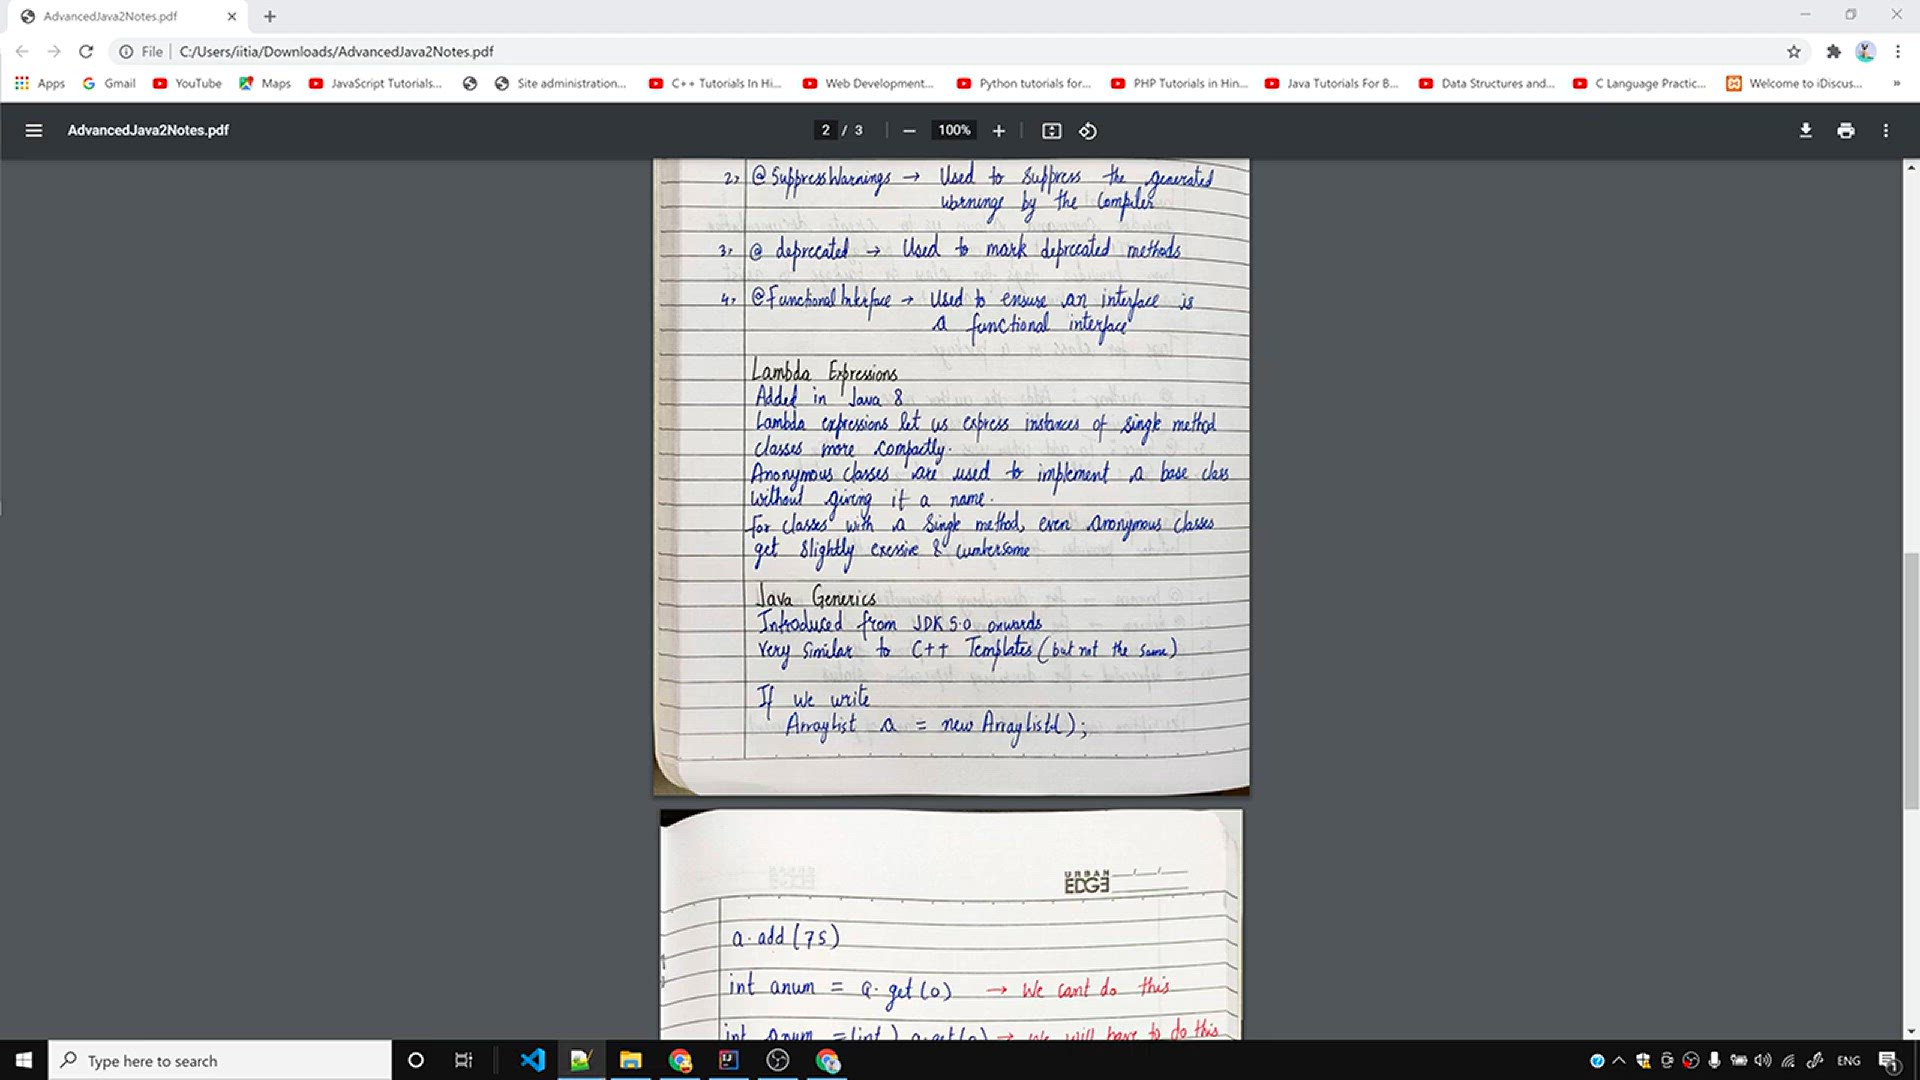 AdvancedJava2Notes.pdf
File | C:/Users/iitia/Downloads/AdvancedJava2Notes.pdf
Apps Gmail YouTube Maps JavaScript Tutorials... Site administration... C++ Tutorials In Hi... Web Development... Python tutorials for... PHP Tutorials in Hin... Java Tutorials For B... Data Structures and... C Language Practic... Welcome to iDiscus... »
AdvancedJava2Notes.pdf 2 / 3 100%
2, @SuppressWarnings → Used to Suppress the generated
warnings by the Compiler
3, @ deprecated → Used to mark deprecated methods
4, @FunctionalInterface → Used to ensure an interface is
a functional interface
Lambda Expressions
Added in Java 8
Lambda expressions let us express instances of single method
classes more compactly.
Anonymous classes are used to implement a base class
without giving it a name.
for classes with a single method, even anonymous classes
get slightly exessive & cumbersome
Java Generics
Introduced from JDK 5.0 onwards
Very Similar to C++ Templates (but not the same)
If we write
Arraylist a = new Arraylist();
URBAN
EDGE
a.add(75)
int anum = a.get(0) → We cant do this
int anum = (int) a.get(0) → We will have to do this
Type here to search
ENG
1